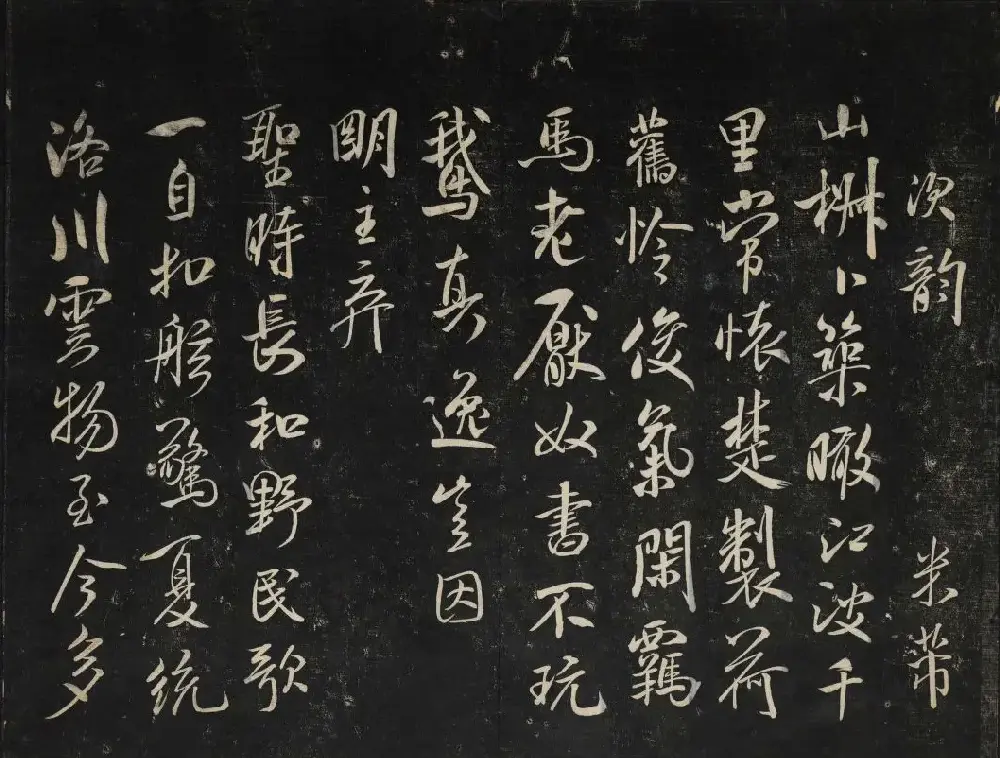 次韵 米芾
山椒卜築瞰江波千
里常懷楚製荷
舊憐俊氣閑羈
馬老厭奴書不玩
鵝真逸豈因
明主弃
聖時長和野民歌
一自扣舷驚夏統
洛川雲物至今多